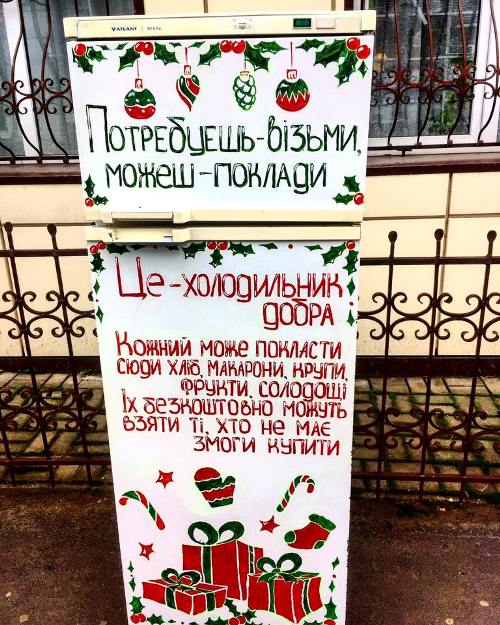 ATLANT
Потребуешь-візьми,
можеш-поклади
Це-холодильник
добра
Кожний може покласти
сюди хліб, макарони, крупи,
фрукти, солодощі
Їх безкоштовно можуть
взяти ті, хто не має
змоги купити